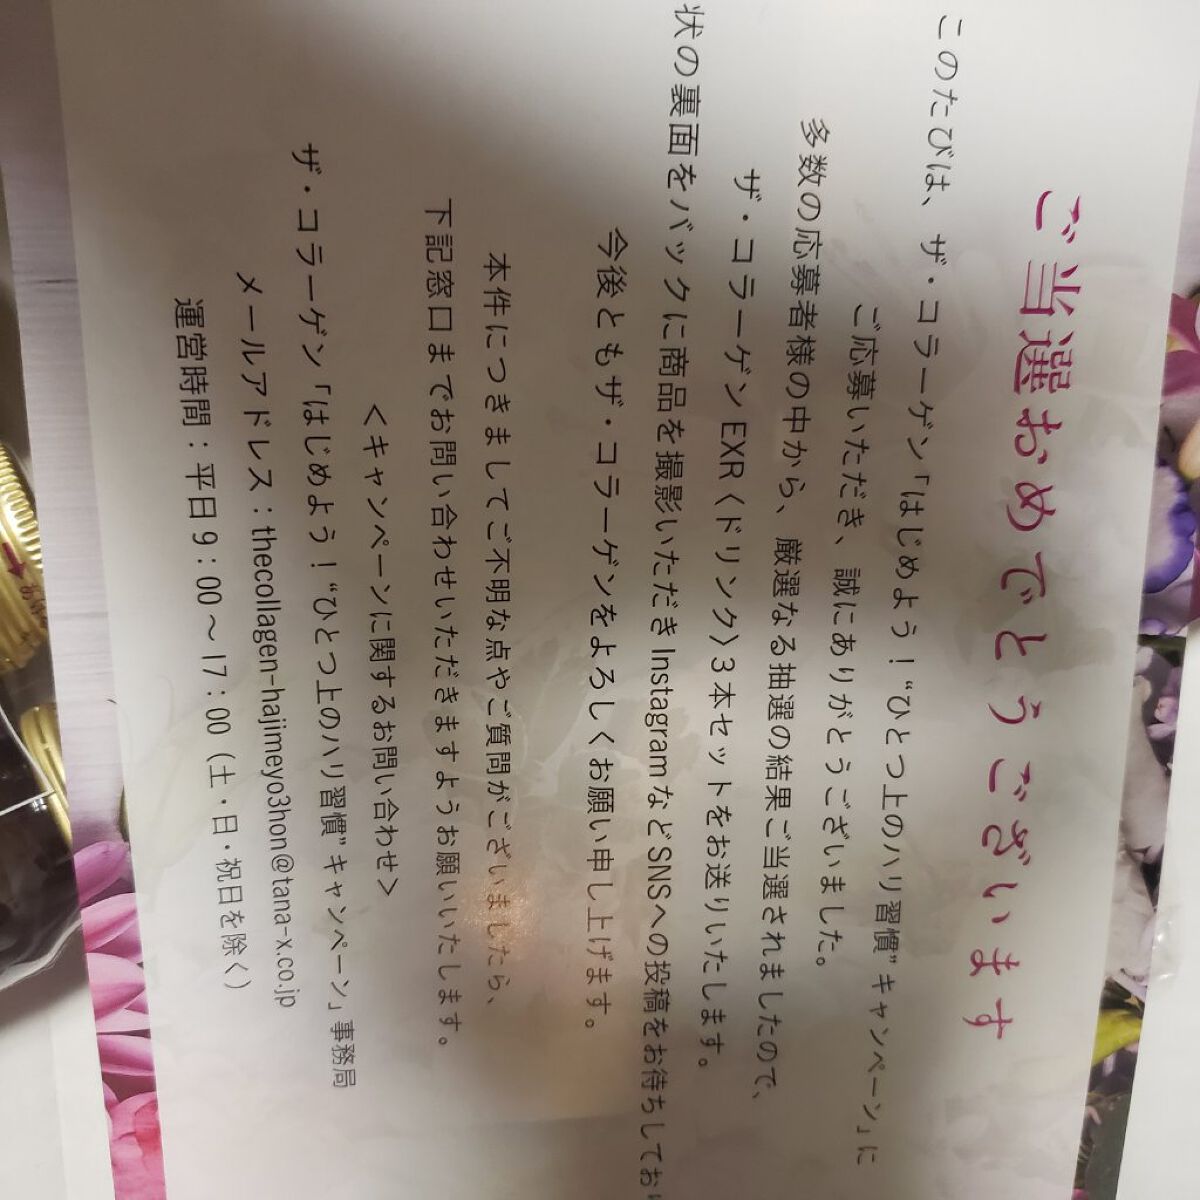 ご当選おめでとうございます
このたびは、ザ・コラーゲン「はじめよう！“ひとつ上のハリ習慣”キャンペーン」に
ご応募いただき、誠にありがとうございました。
多数の応募者様の中から、厳選なる抽選の結果ご当選されましたので、
ザ・コラーゲンEXR〈ドリンク〉3本セットをお送りいたします。
状の裏面をバックに商品を撮影いただきInstagramなどSNSへの投稿をお待ちしており
今後ともザ・コラーゲンをよろしくお願い申し上げます。
本件につきましてご不明な点やご質問がございましたら、
下記窓口までお問い合わせいただきますようお願いいたします。
＜キャンペーンに関するお問い合わせ＞
ザ・コラーゲン「はじめよう！“ひとつ上のハリ習慣”キャンペーン」事務局
メールアドレス：thecollagen-hajimeyo3hon@tana-x.co.jp
運営時間：平日9：00～17：00（土・日・祝日を除く）